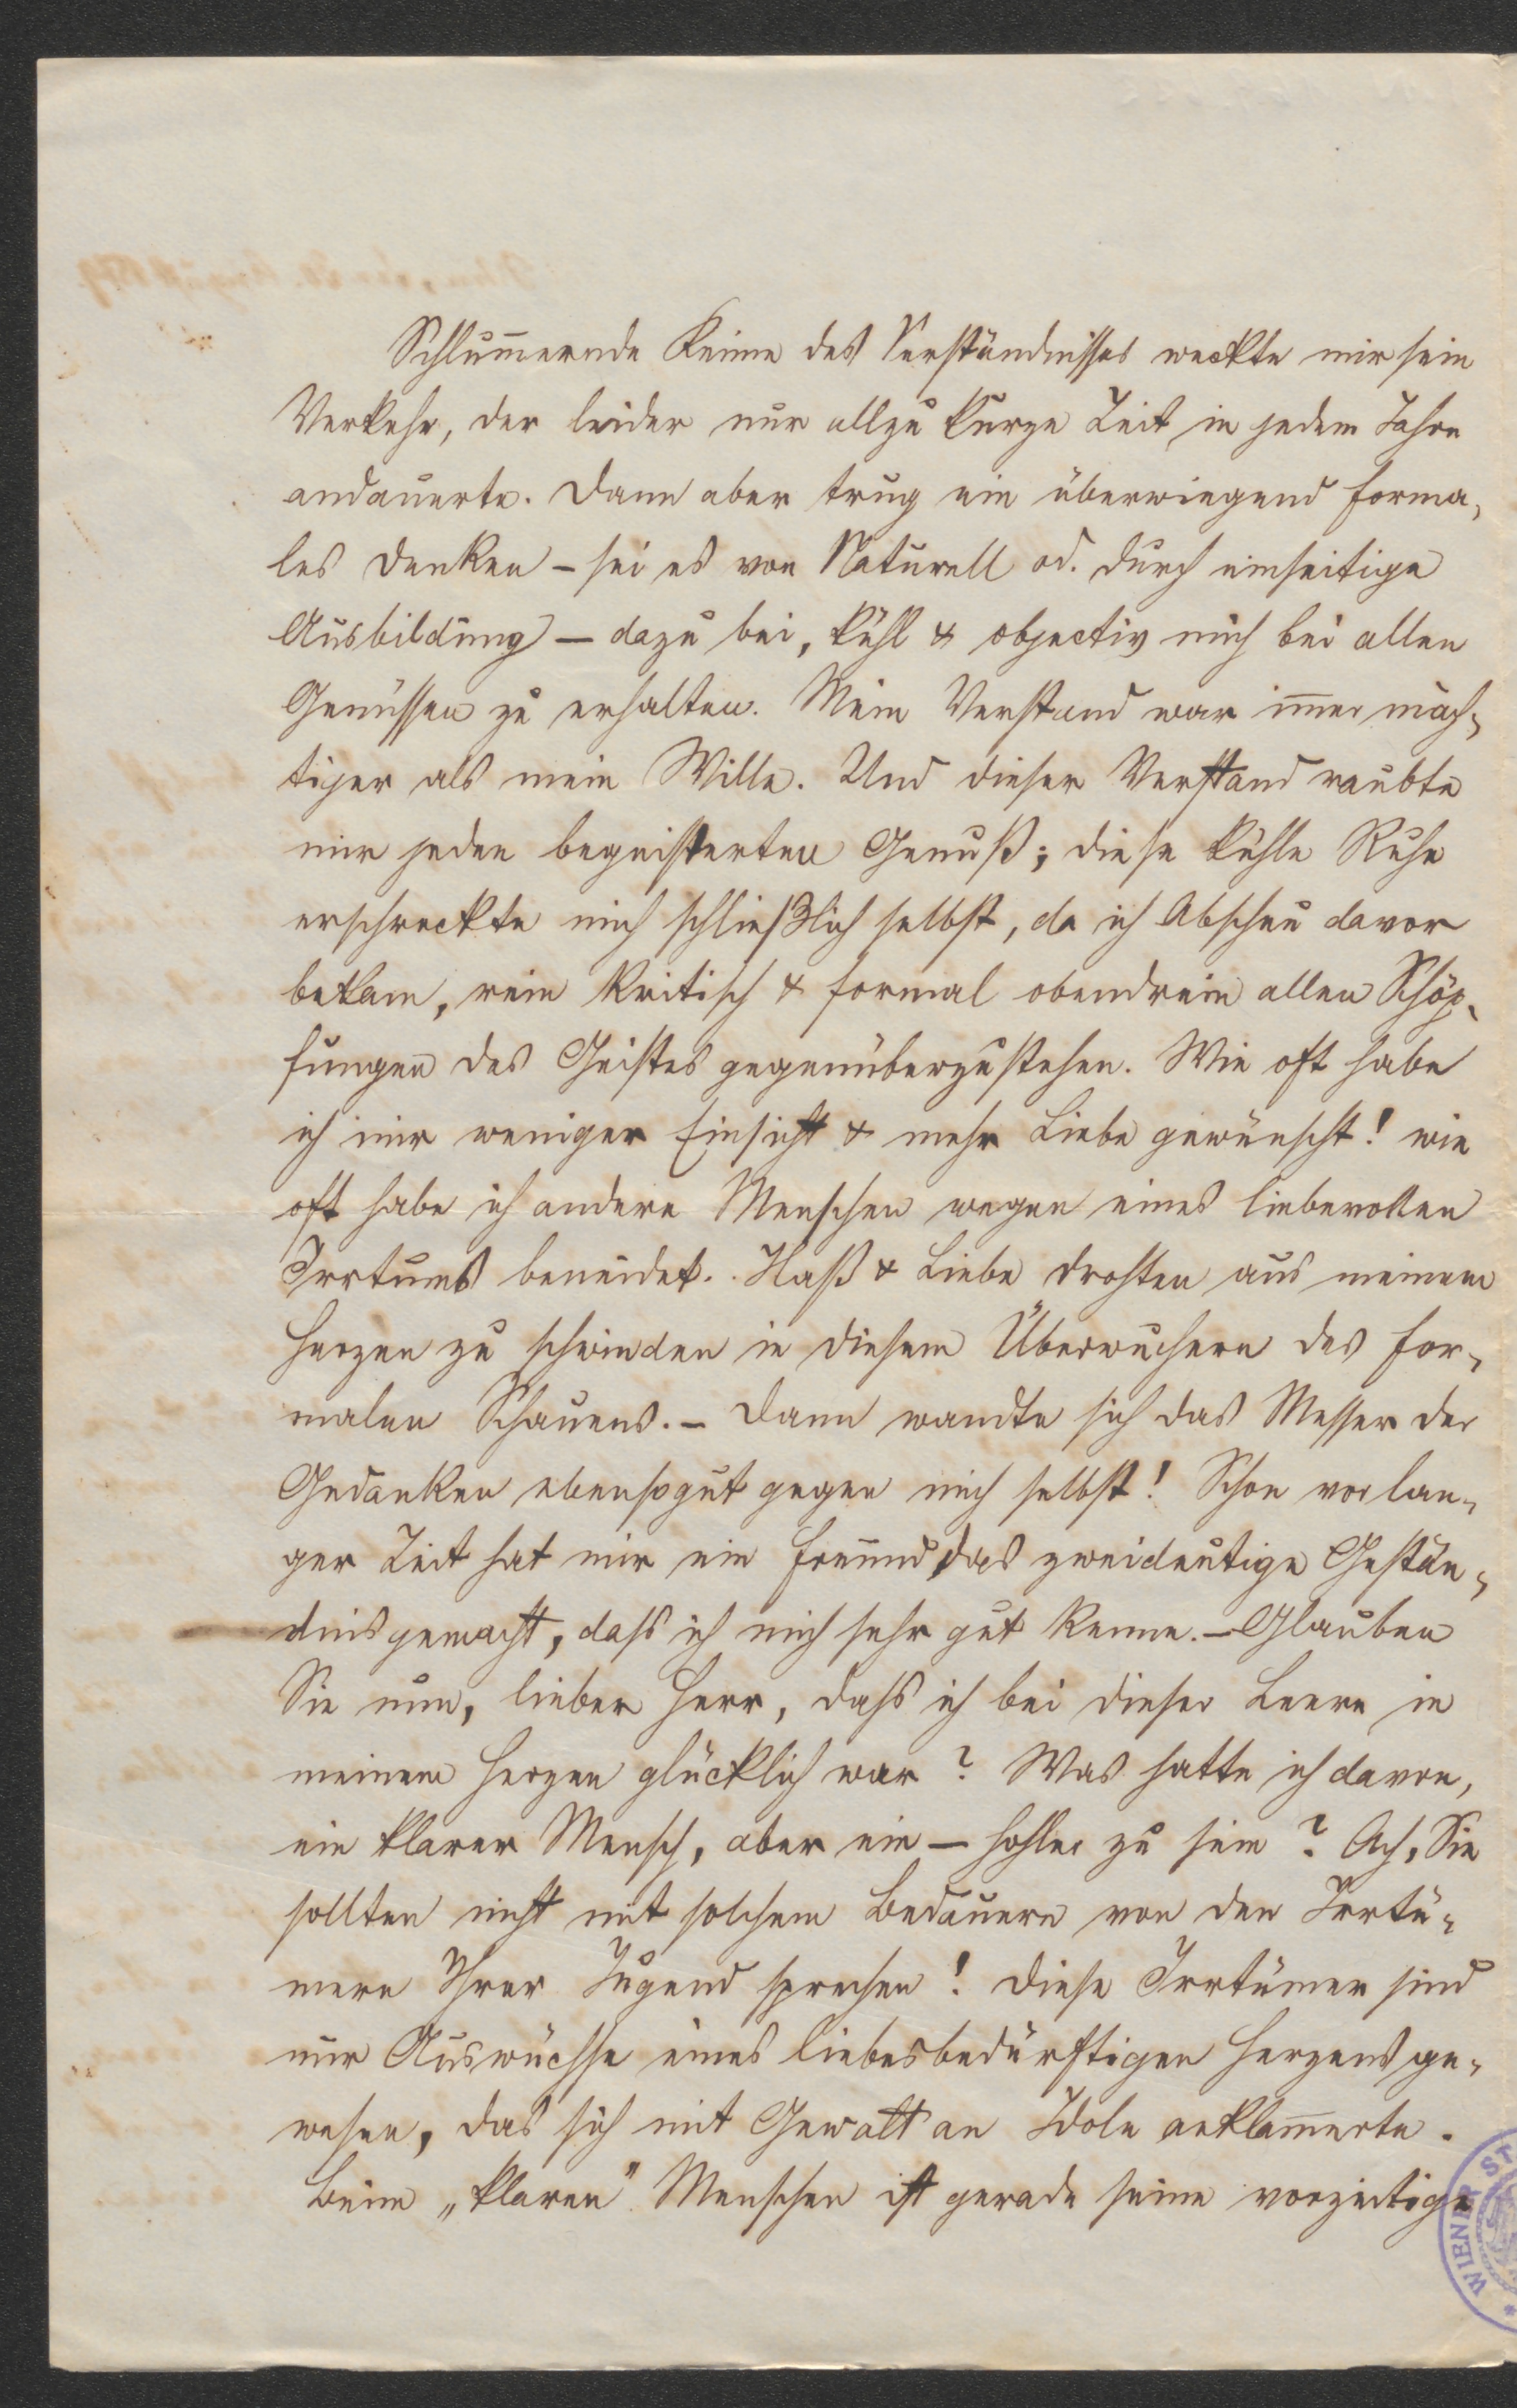 Schlum̅ernde Keime des Verständnisses weckte mir sein
Verkehr, der leider nur allzu kurze Zeit in jedem Jahre
andauerte. Dann aber trug ein überwiegend forma-
les Denken – sei es von Naturell od. durch einseitige
Ausbildung – dazu bei, kühl & objectiv mich bei allen
Genüssen zu erhalten. Mein Verstand war im̅er mäch-
tiger als mein Wille. Und dieser Verstand raubte
mir jeden begeisterten Genuß; diese kühle Ruhe
erschreckte mich schließlich selbst, da ich Abscheu davor
bekam, rein kritisch & formal obendrein allen Schöp-
fungen des Geistes gegenüberzustehen. Wie oft habe
ich mir weniger Einsicht & mehr Liebe gewünscht! wie
oft habe ich andere Menschen wegen eines liebevollen
Irrtums beneidet. Haß & Liebe drohten aus meinem
Herzen zu schwinden in diesem Überwuchern des for-
malen Schauens. – Dann wandte sich das Messer der
Gedanken ebensogut gegen mich selbst! Schon vor lan-
ger Zeit hat mir ein Freund das zweideutige Gestän-
dnis gemacht, dass ich mich sehr gut kenne. – Glauben
Sie nun, lieber Herr, dass ich bei dieser Leere in
meinem Herzen glücklich war? Was hatte ich davon,
ein klarer Mensch, aber ein – hohler zu sein? Ach, Sie
sollten nicht mit solchem Bedauern von den Irrtü-
mern Ihrer Jugend sprechen! Diese Irrtümer sind
nur Auswüchse eines liebesbedürftigen Herzens ge-
wesen, das sich mit Gewalt an Idole anklam̅erte.
Beim „klaren" Menschen ist gerade seine vorzeitige
WIENER ST